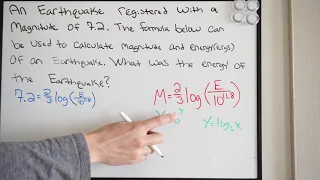 An Earthquake registered with a
Magnitude of 7.2. The formula below can
be used to calculate magnitude and energy(ergs)
of an Earthquake. What was the energy of
the Earthquake?
7.2=2/3log(E/10^11.8) M=2/3log(E/10^11.8)
y=log_b x